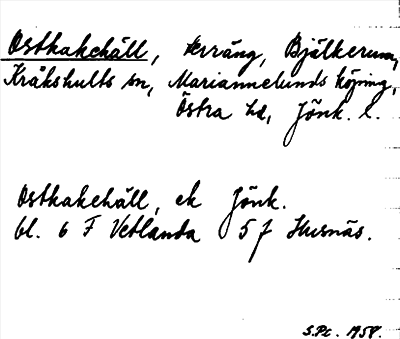 Ostkakehäll, terräng, Bjälkerum,
Kråkshults sn, Mariannelunds köping,
Östra hd, Jönk. l.
Ostkakehäll, ek Jönk.
bl. 6 F Vetlanda 5 f Husnäs.
S.Pt. 1958.